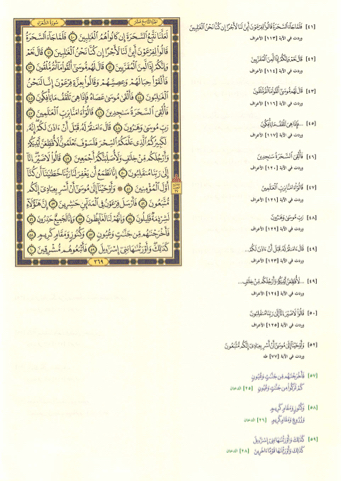 سورة الشعراء
الجزء التاسع عشر
لَعَلَّنَا نَتَّبِعُ السَّحَرَةَ إِن كَانُوا هُمُ الْغَٰلِبِينَ ٤٠ فَلَمَّا جَاءَ السَّحَرَةُ
قَالُوا لِفِرْعَوْنَ أَئِنَّ لَنَا لَأَجْرًا إِن كُنَّا نَحْنُ الْغَٰلِبِينَ ٤١ قَالَ نَعَمْ
وَإِنَّكُمْ إِذًا لَّمِنَ الْمُقَرَّبِينَ ٤٢ قَالَ لَهُم مُّوسَىٰ أَلْقُوا مَا أَنتُم مُّلْقُونَ ٤٣
فَأَلْقَوْا حِبَالَهُمْ وَعِصِيَّهُمْ وَقَالُوا بِعِزَّةِ فِرْعَوْنَ إِنَّا لَنَحْنُ
الْغَٰلِبُونَ ٤٤ فَأَلْقَىٰ مُوسَىٰ عَصَاهُ فَإِذَا هِيَ تَلْقَفُ مَا يَأْفِكُونَ ٤٥
فَأُلْقِيَ السَّحَرَةُ سَٰجِدِينَ ٤٦ قَالُوا ءَامَنَّا بِرَبِّ الْعَٰلَمِينَ ٤٧
رَبِّ مُوسَىٰ وَهَٰرُونَ ٤٨ قَالَ ءَامَنتُمْ لَهُ قَبْلَ أَنْ ءَاذَنَ لَكُمْ إِنَّهُ
لَكَبِيرُكُمُ الَّذِي عَلَّمَكُمُ السِّحْرَ فَلَسَوْفَ تَعْلَمُونَ لَأُقَطِّعَنَّ أَيْدِيَكُمْ
وَأَرْجُلَكُم مِّنْ خِلَٰفٍ وَلَأُصَلِّبَنَّكُمْ أَجْمَعِينَ ٤٩ قَالُوا لَا ضَيْرَ إِنَّا
إِلَىٰ رَبِّنَا مُنقَلِبُونَ ٥٠ إِنَّا نَطْمَعُ أَن يَغْفِرَ لَنَا رَبُّنَا خَطَٰيَٰنَا أَن كُنَّا
أَوَّلَ الْمُؤْمِنِينَ ٥١ ۞ وَأَوْحَيْنَا إِلَىٰ مُوسَىٰ أَنْ أَسْرِ بِعِبَادِي إِنَّكُم
مُّتَّبَعُونَ ٥٢ فَأَرْسَلَ فِرْعَوْنُ فِي الْمَدَائِنِ حَٰشِرِينَ ٥٣ إِنَّ هَٰؤُلَاءِ
لَشِرْذِمَةٌ قَلِيلُونَ ٥٤ وَإِنَّهُمْ لَنَا لَغَائِظُونَ ٥٥ وَإِنَّا لَجَمِيعٌ حَٰذِرُونَ ٥٦
فَأَخْرَجْنَٰهُم مِّن جَنَّٰتٍ وَعُيُونٍ ٥٧ وَكُنُوزٍ وَمَقَامٍ كَرِيمٍ ٥٨
كَذَٰلِكَ وَأَوْرَثْنَٰهَا بَنِي إِسْرَٰءِيلَ ٥٩ فَأَتْبَعُوهُم مُّشْرِقِينَ ٦٠
٣٦٩
[٤١] فَلَمَّا جَاءَ السَّحَرَةُ قَالُوا لِفِرْعَوْنَ أَئِنَّ لَنَا لَأَجْرًا إِن كُنَّا نَحْنُ الْغَٰلِبِينَ
وردت في الآية [١١٣] الأعراف
[٤٢] قَالَ نَعَمْ وَإِنَّكُمْ إِذًا لَّمِنَ الْمُقَرَّبِينَ
وردت في الآية [١١٤] الأعراف
[٤٣] قَالَ لَهُم مُّوسَىٰ أَلْقُوا مَا أَنتُم مُّلْقُونَ
وردت في الآية [١١٦] الأعراف
[٤٥] ...فَإِذَا هِيَ تَلْقَفُ مَا يَأْفِكُونَ
وردت في الآية [١١٧] الأعراف
[٤٦] فَأُلْقِيَ السَّحَرَةُ سَٰجِدِينَ
وردت في الآية [١٢٠] الأعراف
[٤٧] قَالُوا ءَامَنَّا بِرَبِّ الْعَٰلَمِينَ
وردت في الآية [١٢١] الأعراف
[٤٨] رَبِّ مُوسَىٰ وَهَٰرُونَ
وردت في الآية [١٢٢] الأعراف
[٤٩] قَالَ ءَامَنتُمْ لَهُ قَبْلَ أَنْ ءَاذَنَ لَكُمْ...
وردت في الآية [١٢٣] الأعراف
[٤٩] ...لَأُقَطِّعَنَّ أَيْدِيَكُمْ وَأَرْجُلَكُم مِّنْ خِلَٰفٍ...
وردت في الآية [١٢٤] الأعراف
[٥٠] قَالُوا لَا ضَيْرَ إِنَّا إِلَىٰ رَبِّنَا مُنقَلِبُونَ
وردت في الآية [١٢٥] الأعراف
[٥٢] وَأَوْحَيْنَا إِلَىٰ مُوسَىٰ أَنْ أَسْرِ بِعِبَادِي إِنَّكُم مُّتَّبَعُونَ
وردت في الآية [٧٧] طه
[٥٧] فَأَخْرَجْنَٰهُم مِّن جَنَّٰتٍ وَعُيُونٍ
كَمْ تَرَكُوا مِن جَنَّٰتٍ وَعُيُونٍ [٢٥] الدخان
[٥٨] وَكُنُوزٍ وَمَقَامٍ كَرِيمٍ
وَزُرُوعٍ وَمَقَامٍ كَرِيمٍ [٢٦] الدخان
[٥٩] كَذَٰلِكَ وَأَوْرَثْنَٰهَا بَنِي إِسْرَٰءِيلَ
كَذَٰلِكَ وَأَوْرَثْنَٰهَا قَوْمًا ءَاخَرِينَ [٢٨] الدخان